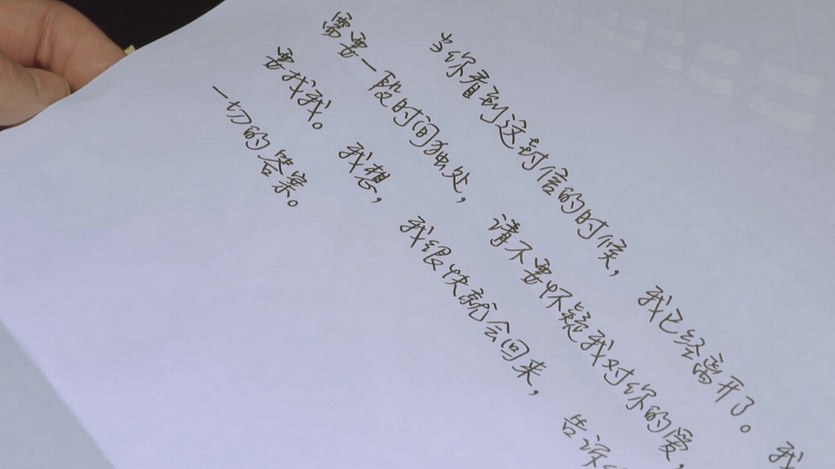 当你看到这封信的时候，我已经离开了。我
需要一段时间独处，请不要怀疑我对你的爱，
要找我。我想，我很快就会回来，告诉
一切的答案。